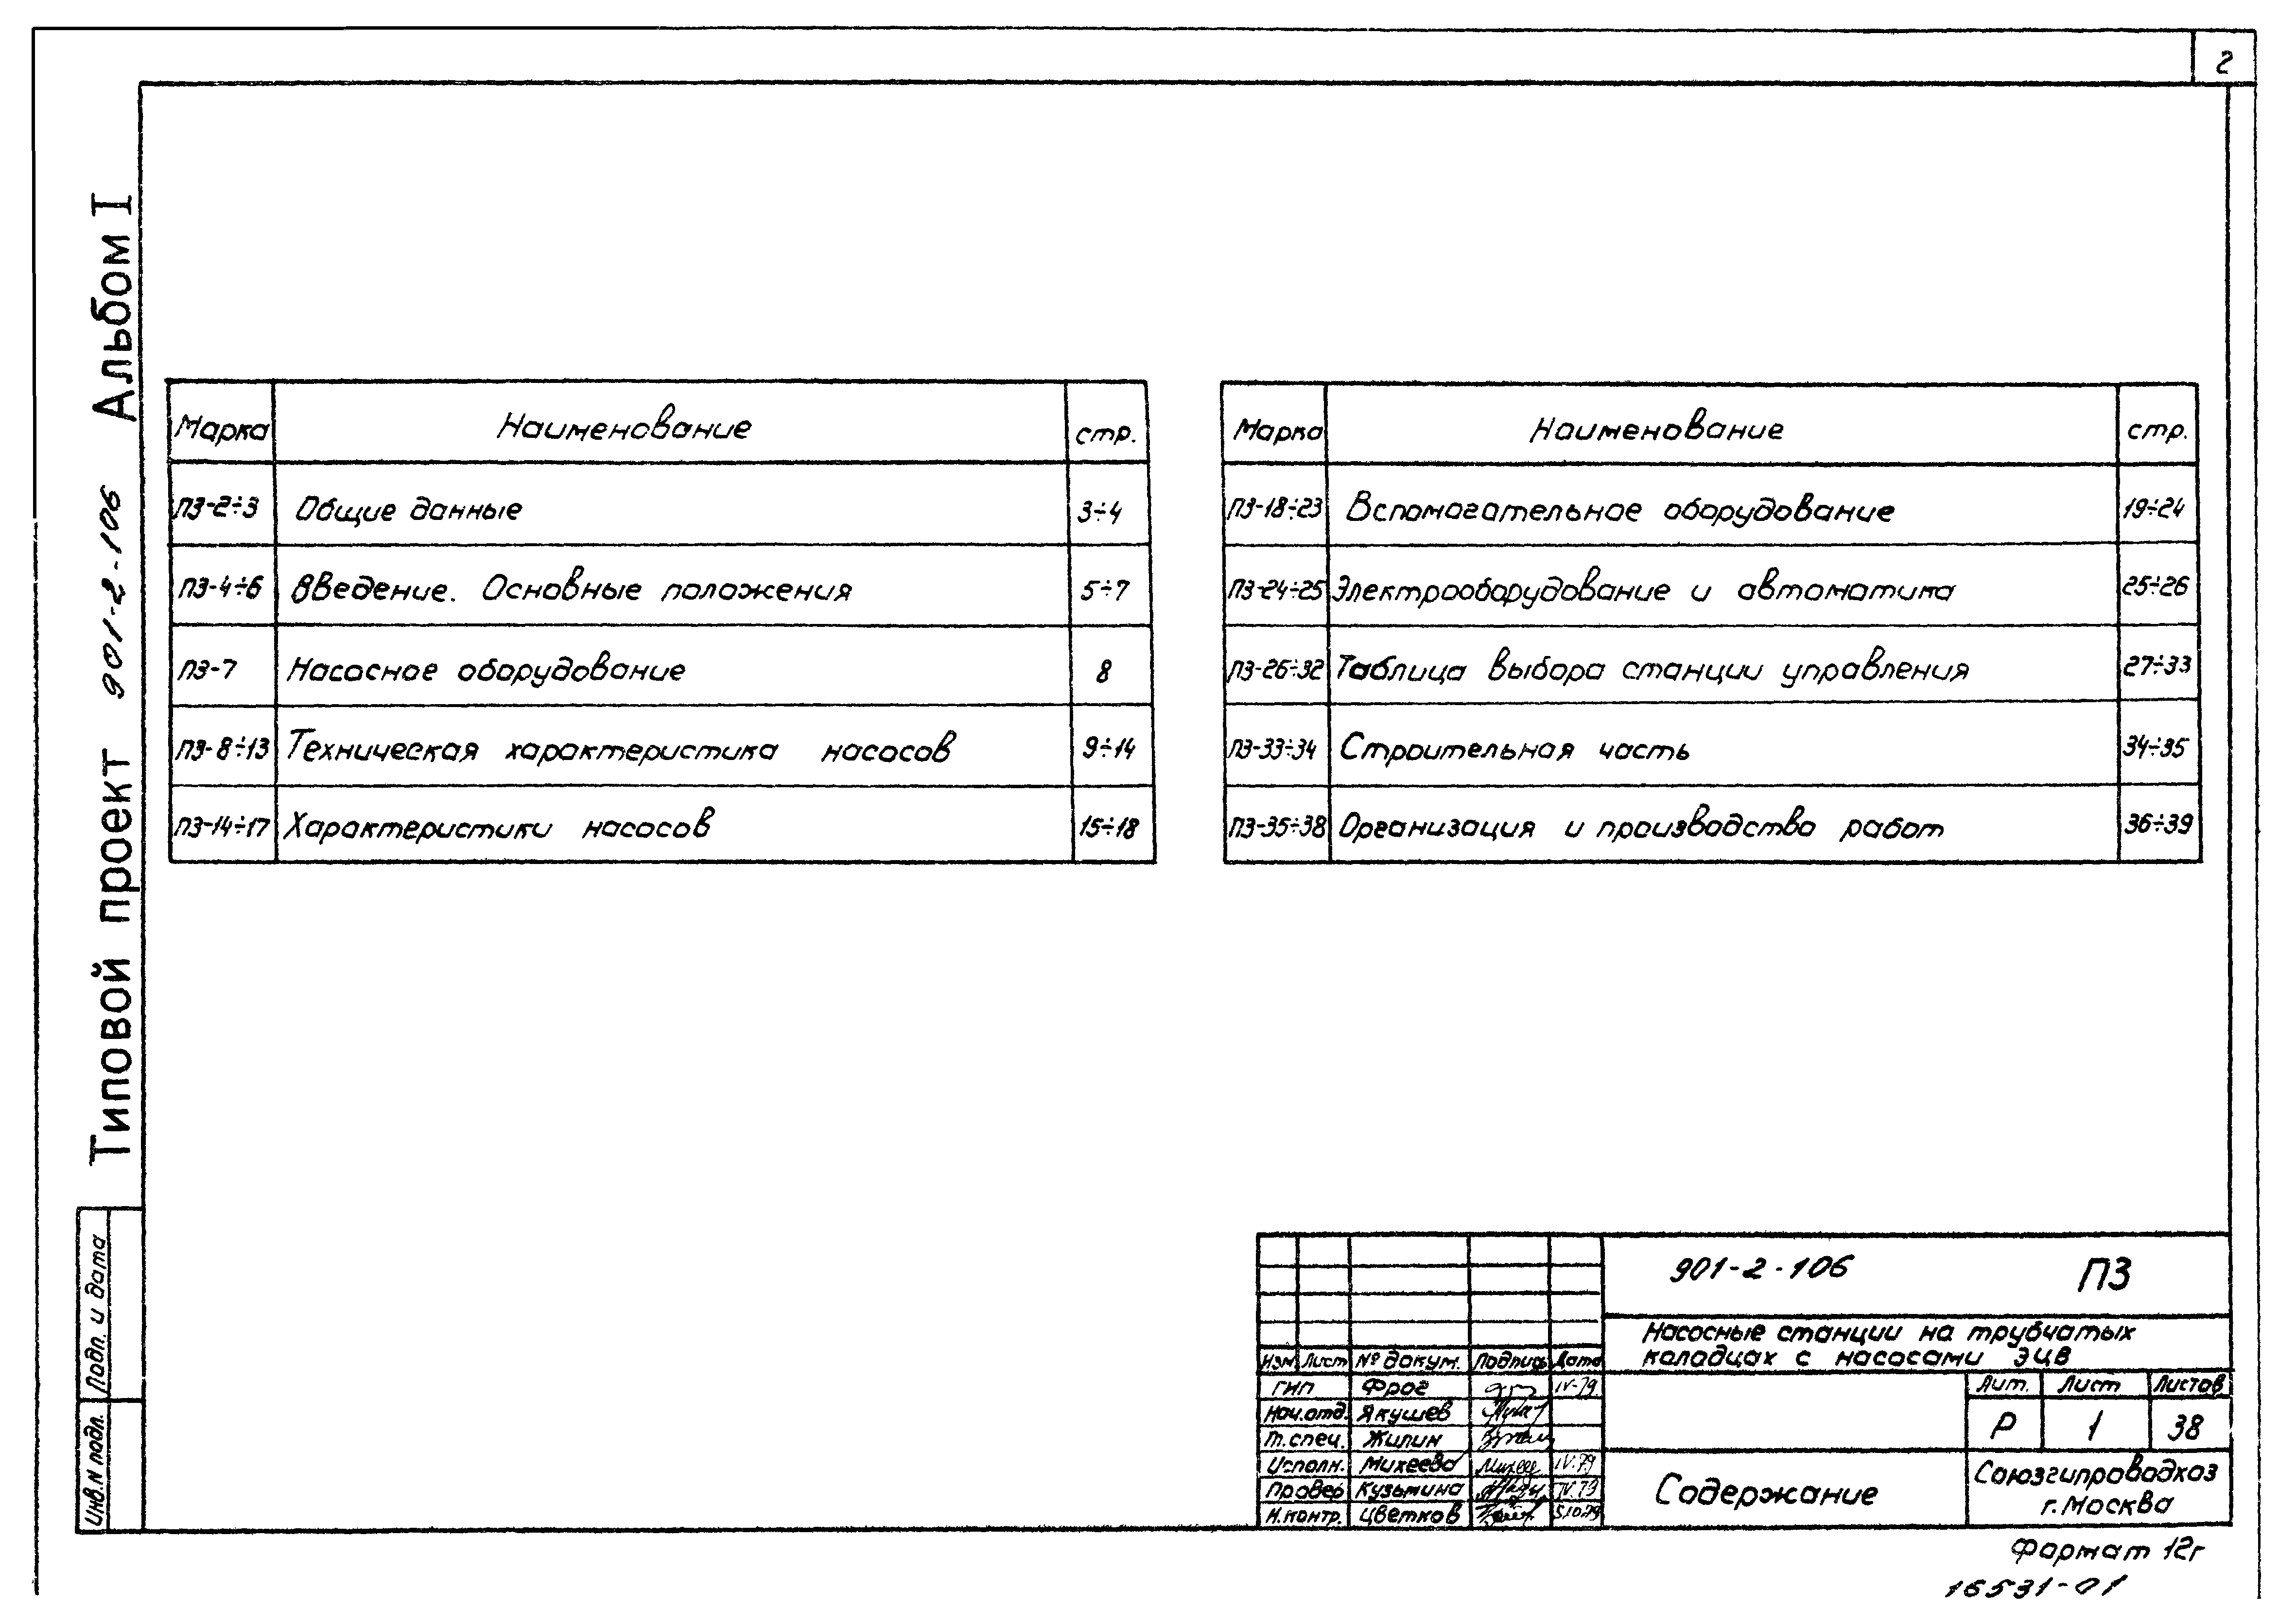 2
Типовой проект 901-2-106 Альбом I
Марка Наименование стр.
ПЗ-2÷3 Общие данные 3÷4
ПЗ-4÷6 вВедение. Основные положения 5÷7
ПЗ-7 Насосное оборудование 8
ПЗ-8÷13 Техническая характеристика насосов 9÷14
ПЗ-14÷17 Характеристики насосов 15÷18
Марка Наименование стр.
ПЗ-18÷23 Вспомогательное оборудование 19÷24
ПЗ-24÷25 Электрооборудование и автоматика 25÷26
ПЗ-26÷32 Таблица выбора станции управления 27÷33
ПЗ-33÷34 Строительная часть 34÷35
ПЗ-35÷38 Организация и производство работ 36÷39
Подп. и дата
Инв.N подл.
901-2-106 ПЗ
Насосные станции на трубчатых
колодцах с насосами ЭЦВ
Изм Лист № докум. Подпись Дата
ГИП Фрог IV-79
Нач.отд. Якушев
Т.спец. Жилин
Исполн. Михеева IV.79
Провер Кузьмина IV.79
Н.контр. Цветков 5.10.79
Лит. Лист Листов
Р 1 38
Содержание
Союзгипроводхоз
г. Москва
Формат 12г
16531-01